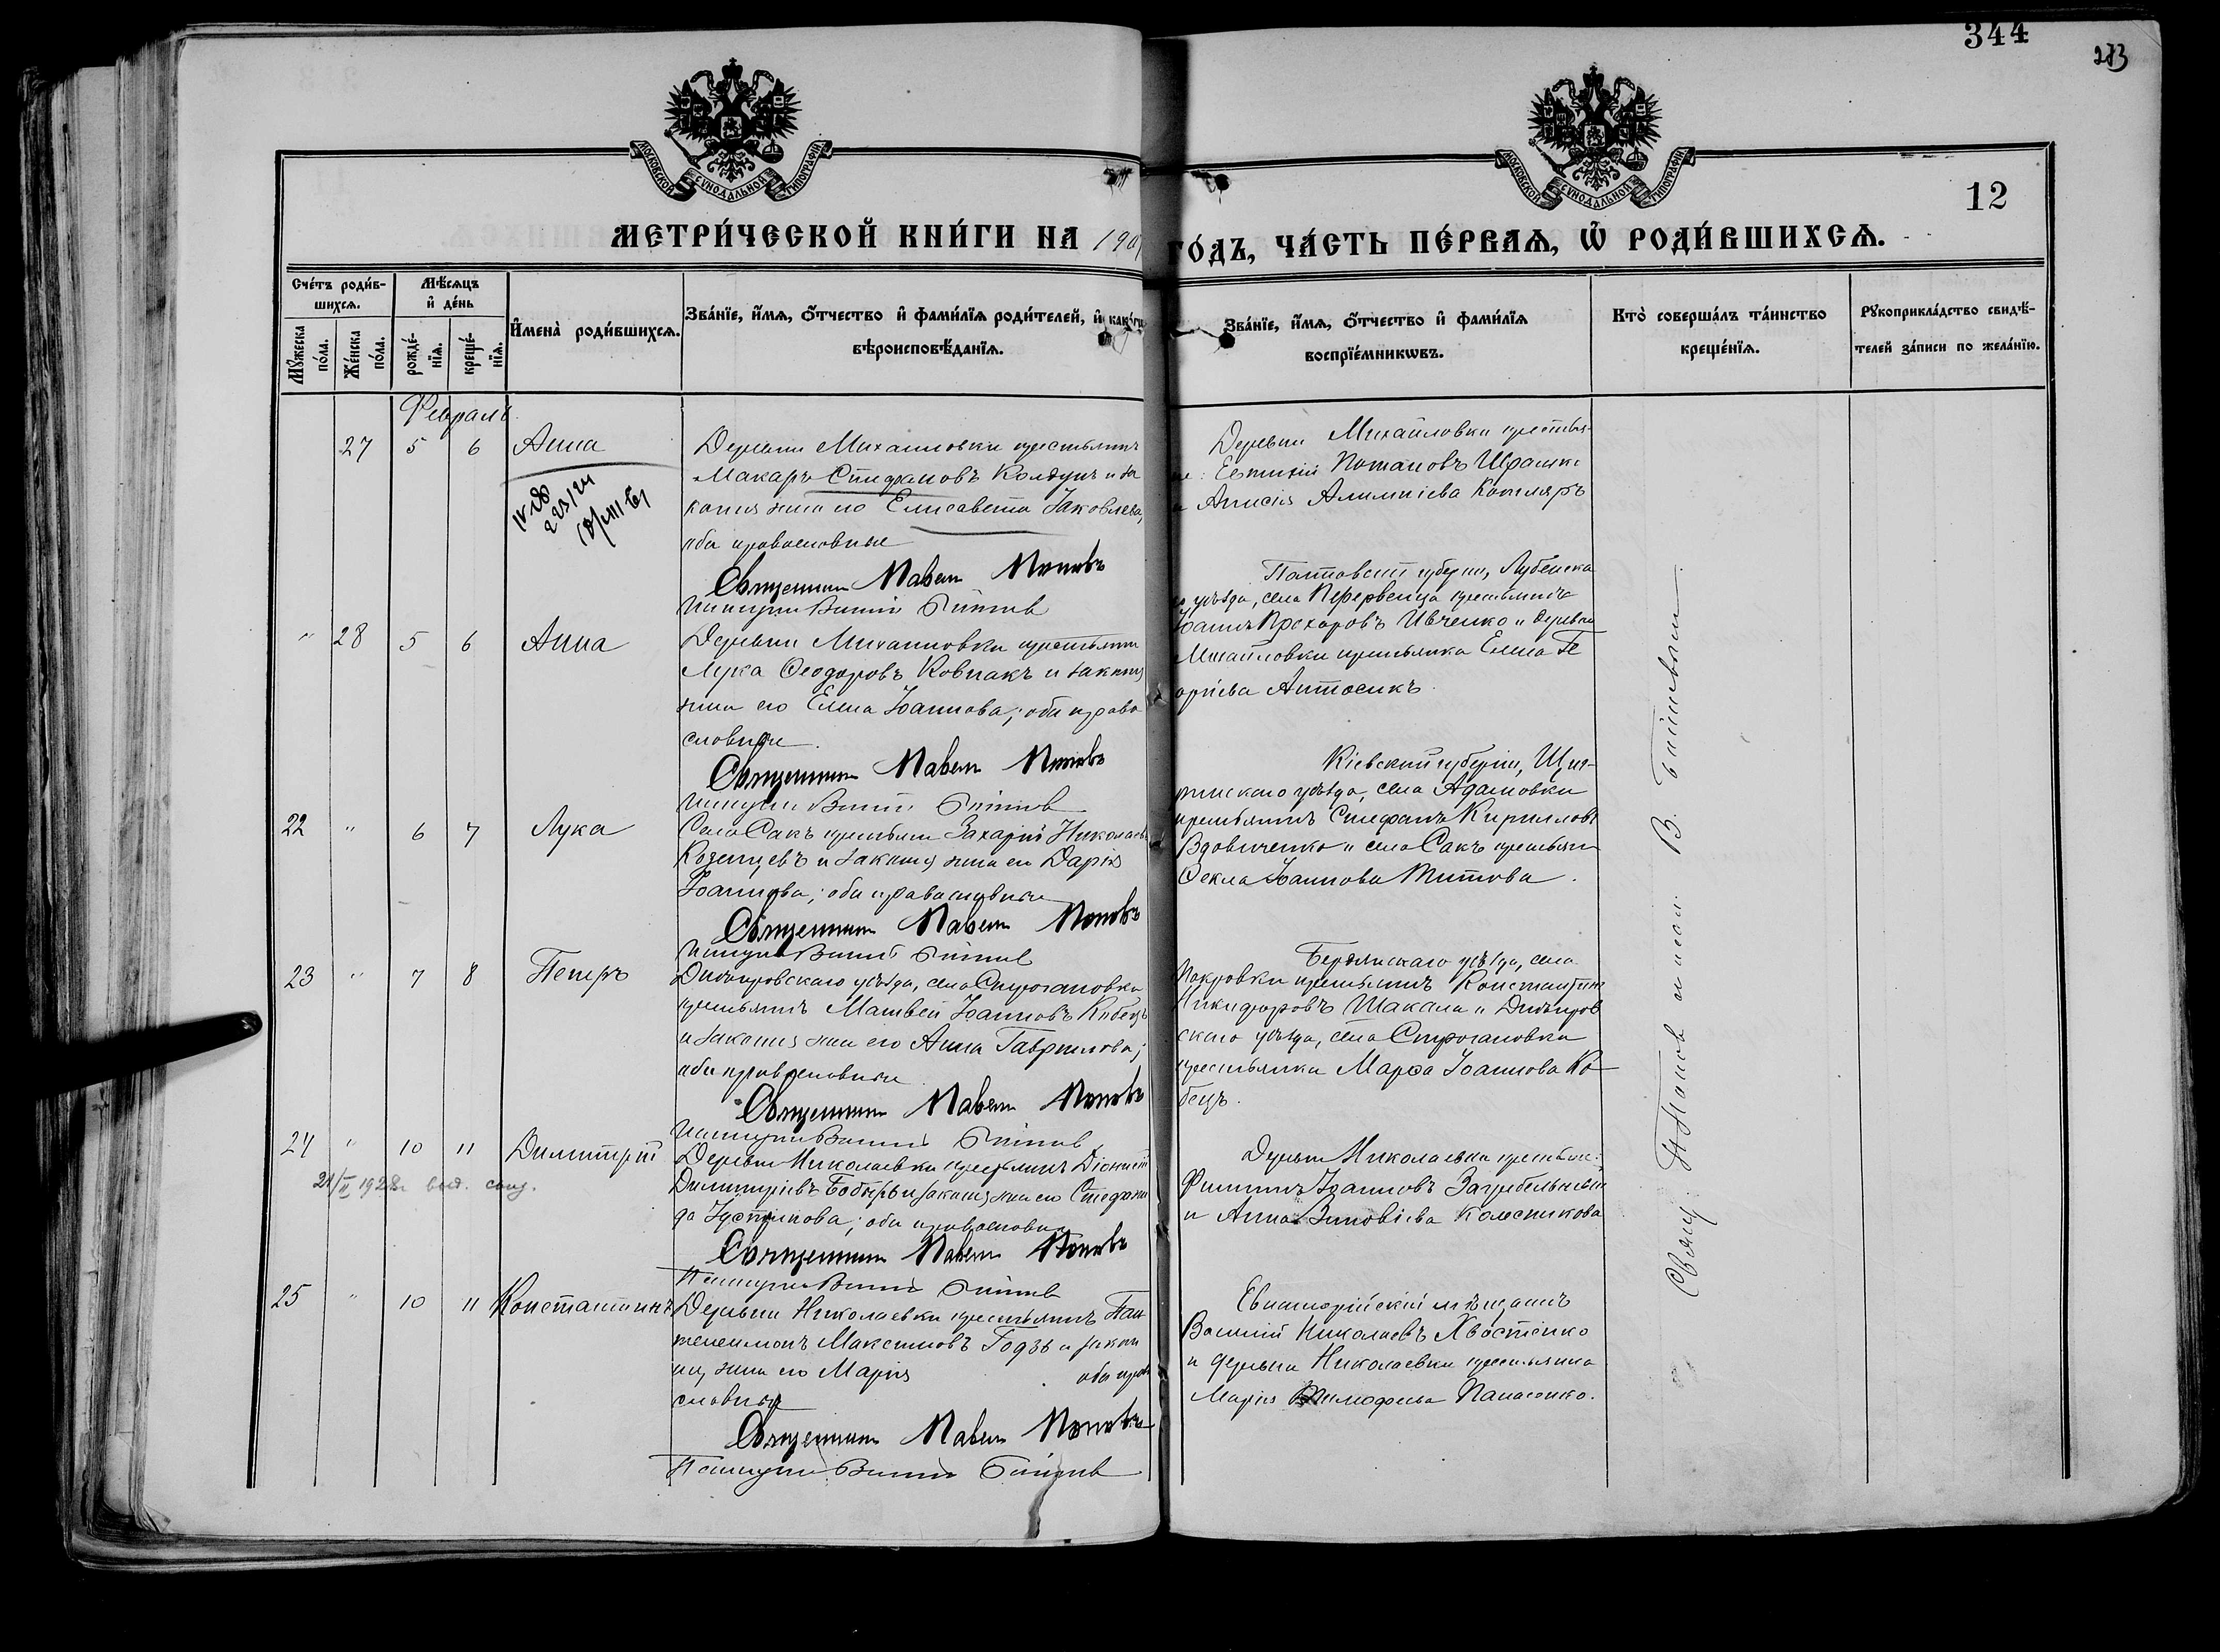 344
273
12
МОСКОВСКОЙ СѴНОДАЛЬНОЙ ТИПОГРАФІИ
МОСКОВСКОЙ СѴНОДАЛЬНОЙ ТИПОГРАФІИ
МЕТРИ́ЧЕСКОЙ КНИ́ГИ НА 190
ГО́ДЪ, ЧА́СТЬ ПЕ́РВАѦ, Ѡ҆ РОДИ́ВШИХСѦ.
Сче́тъ роди́в-
шихсѧ.
Мꙋ́жеска по́ла.
Же́нска по́ла.
Мѣ́сѧцъ и҆ де́нь
рожде́-нїѧ.
креще́-нїѧ.
И҆мена̀ роди́вшихсѧ.
Зва́нїе, и҆́мѧ, ѻ҆́тчество и҆ фами́лїѧ роди́телей, и҆ како́гѡ
вѣроисповѣ́данїѧ.
Зва́нїе, и҆́мѧ, ѻ҆́тчество и҆ фами́лїѧ
воспрїе́мникѡвъ.
Кто̀ соверша́лъ та́инство
креще́нїѧ.
Рꙋкоприкла́дство свидѣ́-
телей за́писи по жела́нїю.
Февраль
27 5 6 Анна
Деревни Михайловки крестьянинъ
Макаръ Стефановъ Колдунъ и за
конная жена его Елисавета Іаковлева,
оба православные
Священникъ Павелъ Поповъ
Деревни Михайловки крестья-
Евтихій Потаповъ
и Анисія Алимпіева Котляръ
" 28 5 6 Анна
Деревни Михайловки крестьянин
Лука Ѳеодоровъ Ковпакъ и законная
жена его Елена Іоаннова; оба право
славные.
Священникъ Павелъ Поповъ
Полтавской губерніи, Лубенска
го уѣзда, села крестьянинъ
Іоаннъ Прохоровъ Ивченко и деревни
Михайловки крестьянка Елена Ге
оргіева Антосикъ.
22 " 6 7 Лука
Села Сакъ крестьянин Захарій Николаевъ
Козенцевъ и законная жена его Дарія
Іоаннова; оба православные
Священникъ Павелъ Поповъ
Кіевской губерніи,
уѣзда, села Адамовки
крестьянинъ Стефанъ Кирилловъ
Вдовиченко и села Сакъ крестьян
Ѳекла Іоаннова Титова.
23 " 7 8 Петръ
Днѣпровскаго уѣзда, села Строгановки
крестьянинъ Матвей Іоанновъ Кобецъ
и законная жена его Анна Гавріилова;
оба православные
Священникъ Павелъ Поповъ
Бердянскаго уѣзда, села
Покровки крестьянинъ Константинъ
Никифоровъ Шакала и Днѣпров
скаго уѣзда, села Строгановки
крестьянка Марѳа Іоаннова Ко-
бецъ.
24 " 10 11 Димитрій
21/II 1928г. выд. свид.
Деревни Николаевки крестьянинъ Діонисій
Димитріевъ Бобырь и законная жена его Стефани
да Іустинова; оба православные
Священникъ Павелъ Поповъ
Деревни Николаевки крестьян:
Филиппъ Іоанновъ Загребельный
и Анна Зиновіева Колесникова
25 " 10 11 Константинъ
Деревни Николаевки крестьянинъ Пан
телеимонъ Максимовъ Годзь и закон
ная жена его Марія оба право
славные
Священникъ Павелъ Поповъ
Евпаторійскій мѣщанинъ
Василій Николаевъ Хвостенко
и деревни Николаевки крестьянка
Марія Тимофеева Панасенко.
Свящ. П. Попов и псал. В.